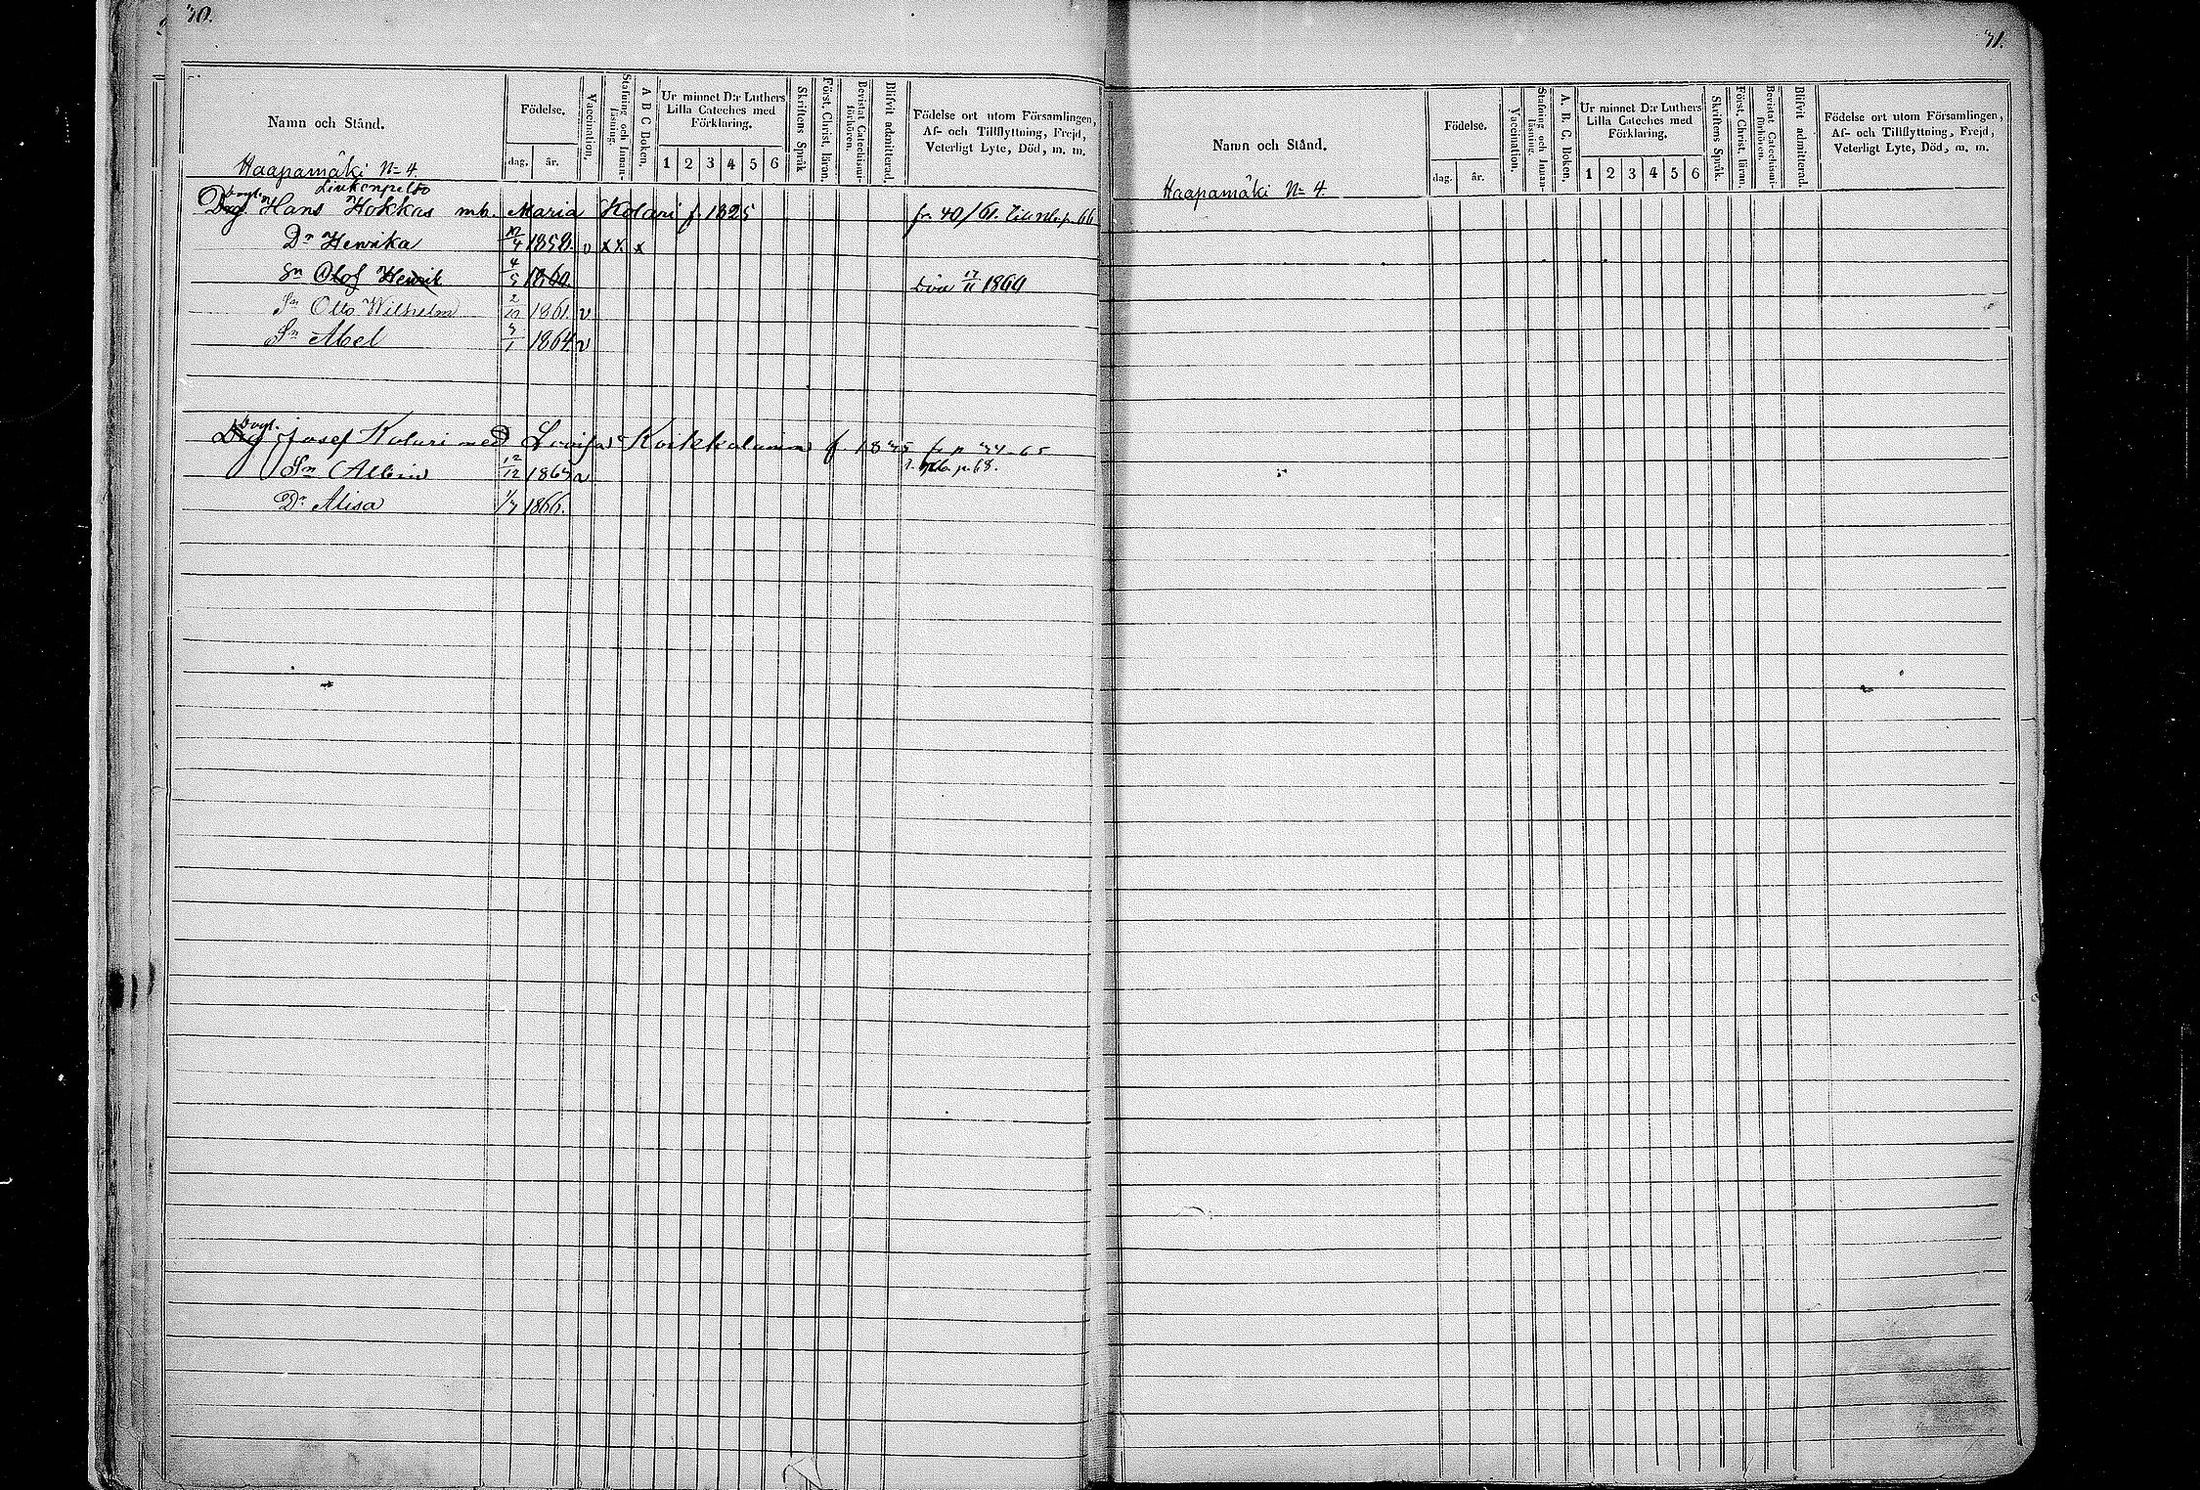 30.
Namn och Stånd.
Födelse.
dag. år.
Vaccination.
Stafning och Innanläsning.
A B C Boken.
Ur minnet D:r Luthers Lilla Cateches med Förklaring.
1 2 3 4 5 6
Skriftens Språk
Först. Christ. läran.
Bevistat Catechismiförhören.
Blifvit admitterad.
Födelse ort utom Församlingen, Af- och Tillflyttning, Frejd, Veterligt Lyte, Död, m. m.
Haapamäki No 4.
Hans Hokkas mb. Maria Kolari f. 1825 fr. 40/61.
Dr Henrika 1858. v x x x
Sn Olof Henrik 4/5 1860. Död 17/11 1860
Sn Otto Wilhelm 1861. v
Sn Abel 1864 v
Josef Kolari med Lovisa f.
Sn Albin 12/12 186 v p. 68.
Dr Alisa 1866.
31.
Namn och Stånd.
Födelse.
dag. år.
Vaccination.
Stafning och Innanläsning.
A. B. C. Boken.
Ur minnet D:r Luthers Lilla Cateches med Förklaring.
1 2 3 4 5 6
Skriftens Språk.
Först. Christ. lärm.
Bevistat Catechismiförhören.
Blifvit admitterad.
Födelse ort utom Församlingen, Af- och Tillflyttning, Frejd, Veterligt Lyte, Död, m. m.
Haapamäki No 4.